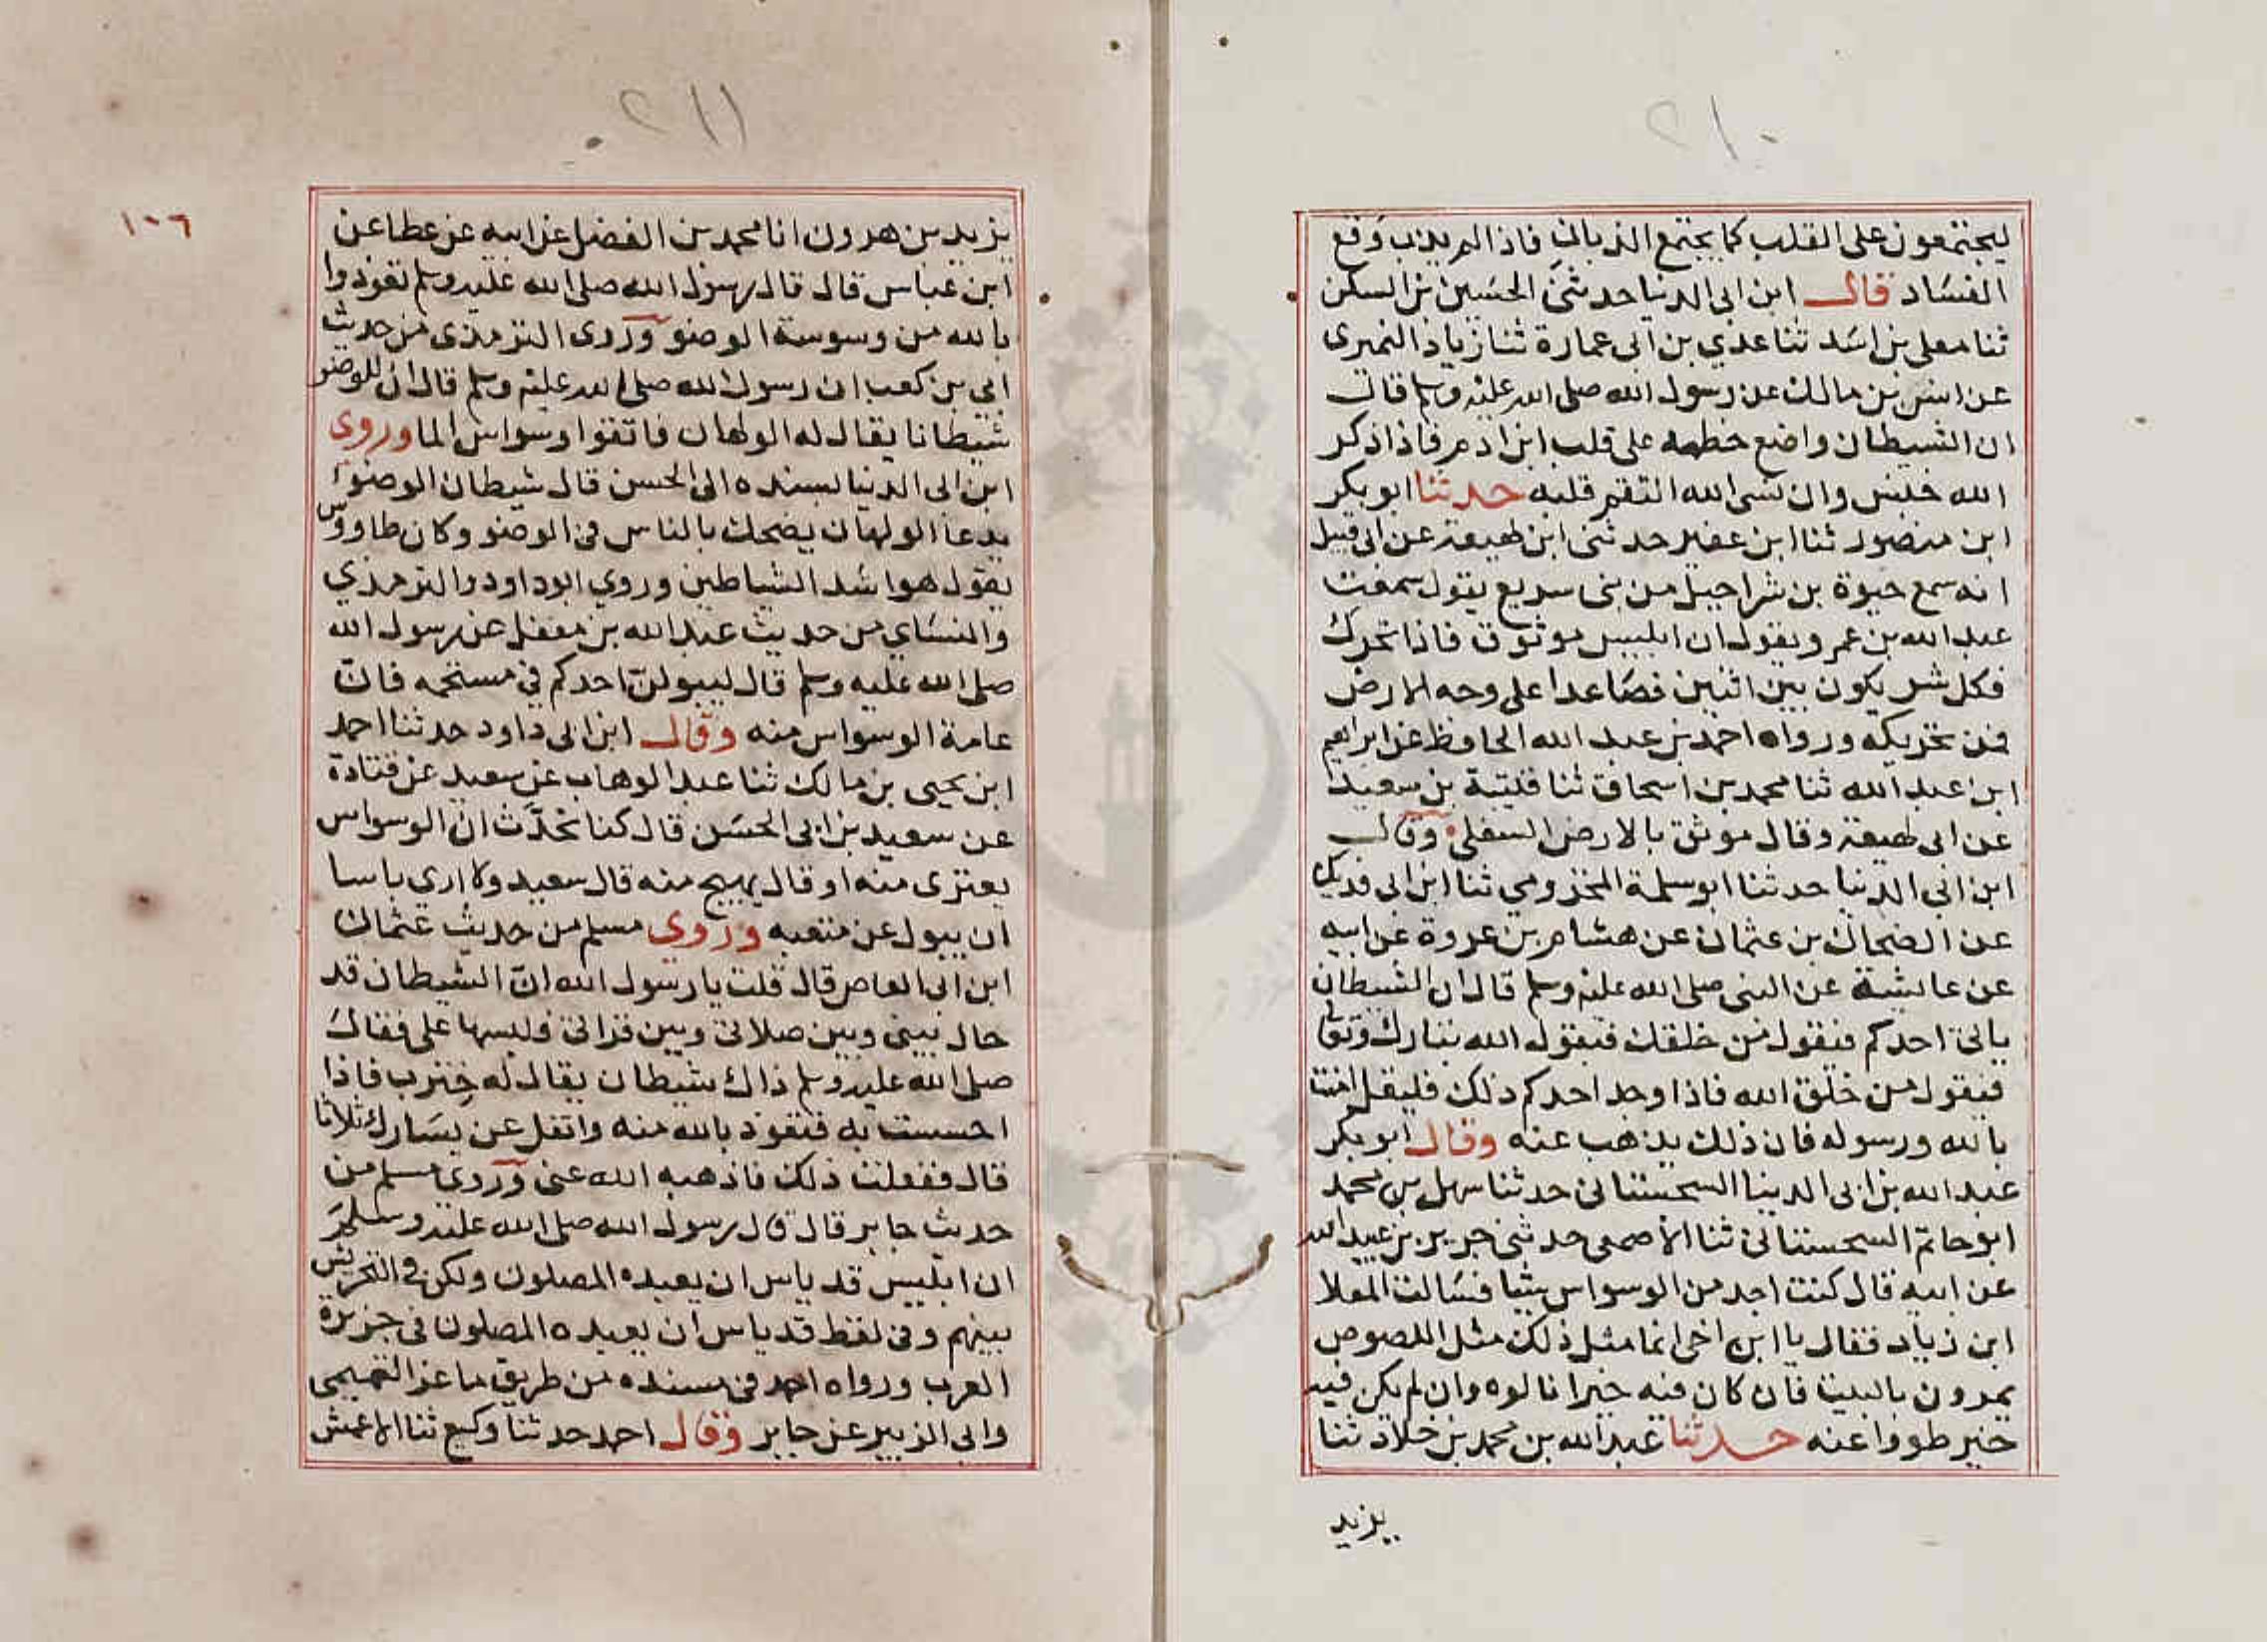 ٢١٠
ليجتمعون على القلب كما يجتمع الذبان فاذا لم يذب وقع
الفساد قال ابن ابى الدنيا حدثنى الحسين بن السكن
ثنا معلى بن اسد ثنا عدي بن ابى عمارة ثنا زياد النميرى
عن انس بن مالك عن رسول الله صلى الله عليه وسلم قال
ان الشيطان واضع خطمه على قلب ابن ادم فاذا ذكر
الله خنس وان نسى الله التقم قلبه حدثنا ابو بكر
ابن منصور ثنا ابن عفير حدثنى ابن لهيعة عن ابى قبيل
انه سمع حيوة بن شراحيل من بنى سريع يقول سمعت
عبد الله بن عمرو يقول ان ابليس موثوق فاذا تحرك
فكل شر يكون بين اثنين فصاعدا على وجه الارض
فمن تحريكه ورواه احمد بن عبد الله الحافظ عن ابراهيم
ابن عبد الله ثنا محمد بن اسحاق ثنا قتيبة بن سعيد
عن ابى لهيعة وقال موثق بالارض السفلى وقال
ابن ابي الدنيا حدثنا ابو سلمة المخزومي ثنا ابن ابى فديك
عن الضحاك بن عثمان عن هشام بن عروة عن ابيه
عن عايشة عن النبى صلى الله عليه وسلم قال ان الشيطان
ياتى احدكم فيقول من خلقك فيقول الله تبارك وتعالى
فيقول من خلق الله فاذا وجد احدكم ذلك فليقل امنت
بالله ورسوله فان ذلك يذهب عنه وقال ابو بكر
عبد الله بن ابى الدينا السجستانى حدثنا سهل بن محمد
ابو حاتم السجستانى ثنا الأصمعى حدثنى جرير بن عبيد الله
عن ابيه قال كنت اجد من الوسواس شيا فسالت العلا
ابن زياد فقال يا ابن اخى انما مثل ذلك مثل اللصوص
يمرون بالبيت فان كان فيه خيرا نالوه وان لم يكن فيه
خير طووا عنه حدثنا عبد الله بن محمد بن خلاد ثنا
يزيد
٢١١
١٠٦
يزيد بن هرون انا محمد بن الفضل عن ابيه عن عطا عن
ابن عباس قال قال رسول الله صلى الله عليه وسلم تعوذوا
بالله من وسوسة الوضو وروى الترمذى من حديث
ابي بن كعب ان رسول الله صلى الله عليه وسلم قال ان للوضو
شيطانا يقال له الولهان فاتقوا وسواس الما وروى
ابن ابى الدنيا بسنده الى الحسن قال شيطان الوضوء
يدعا الولهان يضحك بالناس فى الوضو وكان طاووس
يقول هو اشد الشياطين وروي ابو داود والترمذي
والنساي من حديث عبد الله بن مغفل عن رسول الله
صلى الله عليه وسلم قال ليبولن احدكم في مستحمه فان
عامة الوسواس منه وقال ابن ابى داود حدثنا احمد
ابن يحيى بن مالك ثنا عبد الوهاب عن سعيد عن قتادة
عن سعيد بن ابى الحسن قال كنا نحدث ان الوسواس
يعترى منه او قال يهيج منه قال سعيد ولا اري باسا
ان يبول عن متعبه وروى مسلم من حديث عثمان
ابن ابى العاص قال قلت يا رسول الله ان الشيطان قد
حال بينى وبين صلاتى وبين قراتى ولبسها على فقال
صلى الله عليه وسلم ذاك شيطان يقال له خنزب فاذا
احسست به فتعوذ بالله منه واتفل عن يسارك ثلاثا
قال ففعلت ذلك فاذهبه الله عنى وروى مسلم من
حديث جابر قال قال رسول الله صلى الله عليه وسلم
ان ابليس قد ياس ان يعبده المصلون ولكن فى التحريش
بينهم وفى لفظ قد ياس ان يعبده المصلون فى جزيرة
العرب ورواه احمد فى مسنده من طريق ماعز التميمى
وابى الزبير عن جابر وقال احمد حدثنا وكيع ثنا الاعمش